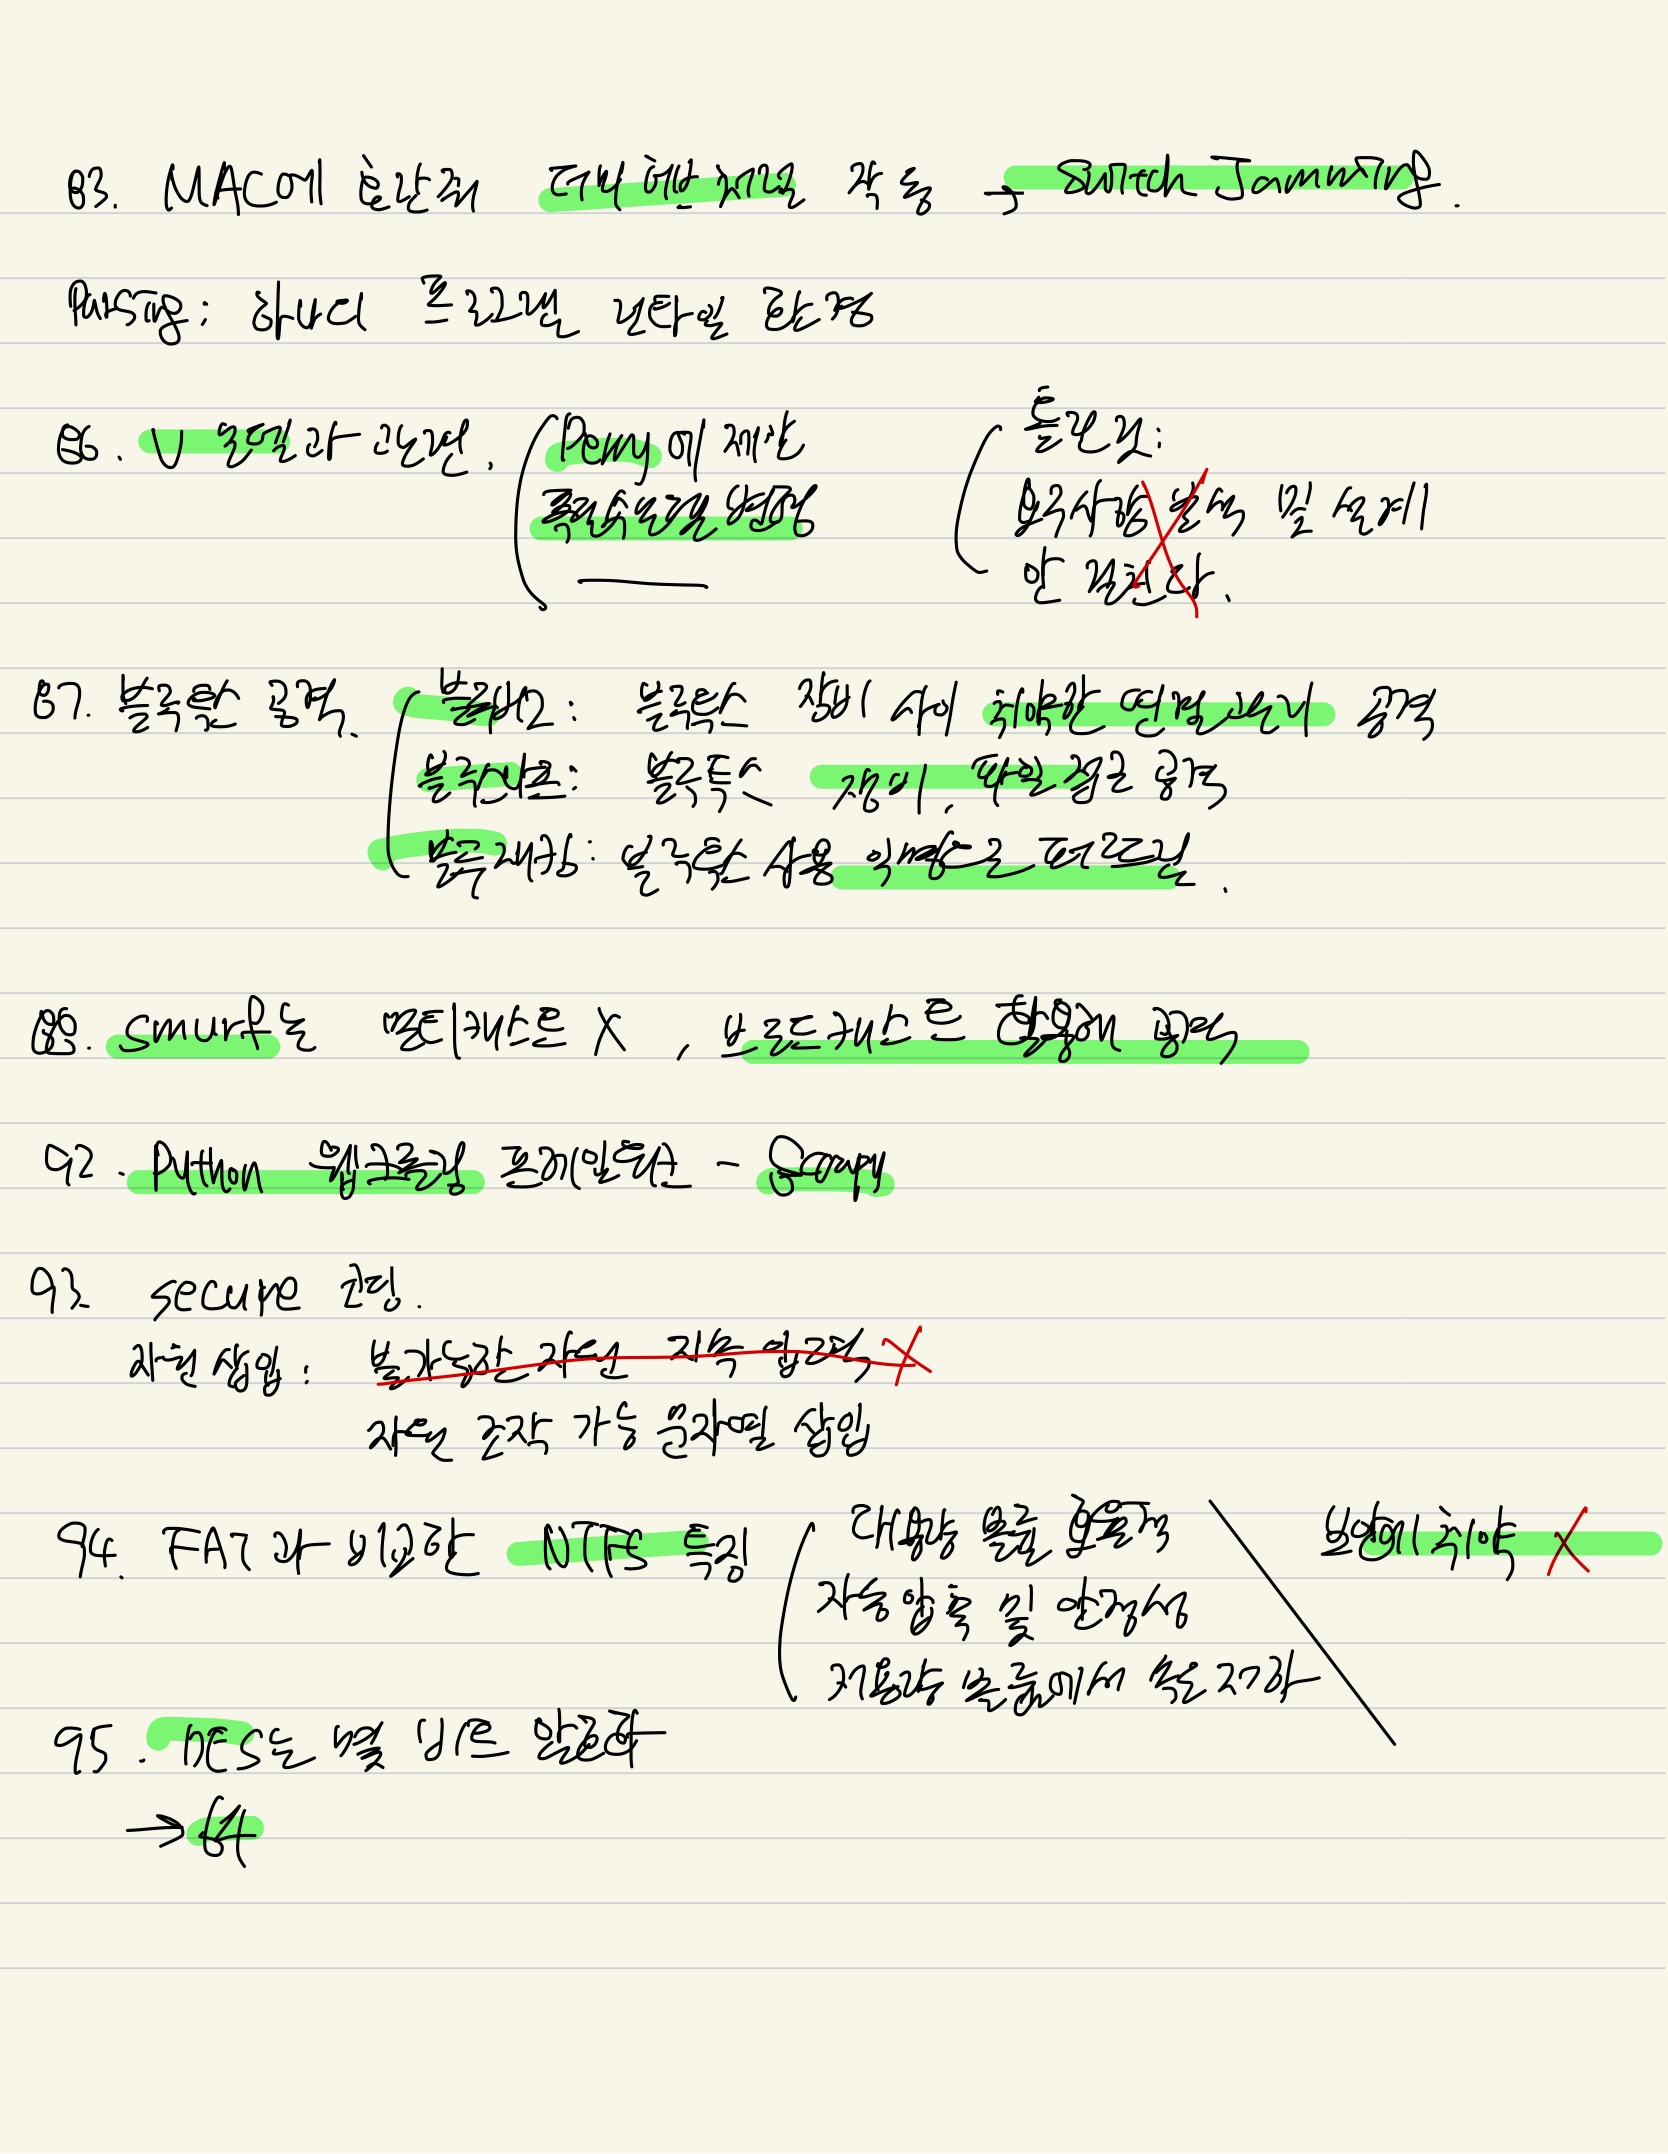 83. MAC에 혼란줘 더미 허브처럼 작동 → Switch Jamming.
Parsing: 하나의 프로그램 런타일 환경
86. V 모델과 관련.
Perry에 제안
폭포수모델 변형
틀린 것:
요구사항 분석 및 설계
안 거친다.
87. 블루투스 공격.
블루버그: 블루투스 장비 사이 취약한 연결 관리 공격
블루스나프: 블루투스 장비, 파일 접근 공격
블루재킹: 블루투스 사용 익명으로 퍼뜨림.
88. Smurf는 멀티캐스트 X, 브로드캐스트 활용해 공격
92. Python 웹크롤링 프레임워크 - Scrapy
93 secure 코딩.
자원 삽입: 불가능한 자원 지속 입력 X
자원 조작 가능 문자열 삽입
94. FAT과 비교한 NTFS 특징
대용량 볼륨 효율적
자동 압축 및 안정성
저용량 볼륨에서 속도 저하
보안에 취약 X
95. DES는 몇 비트 암호화
→ 64